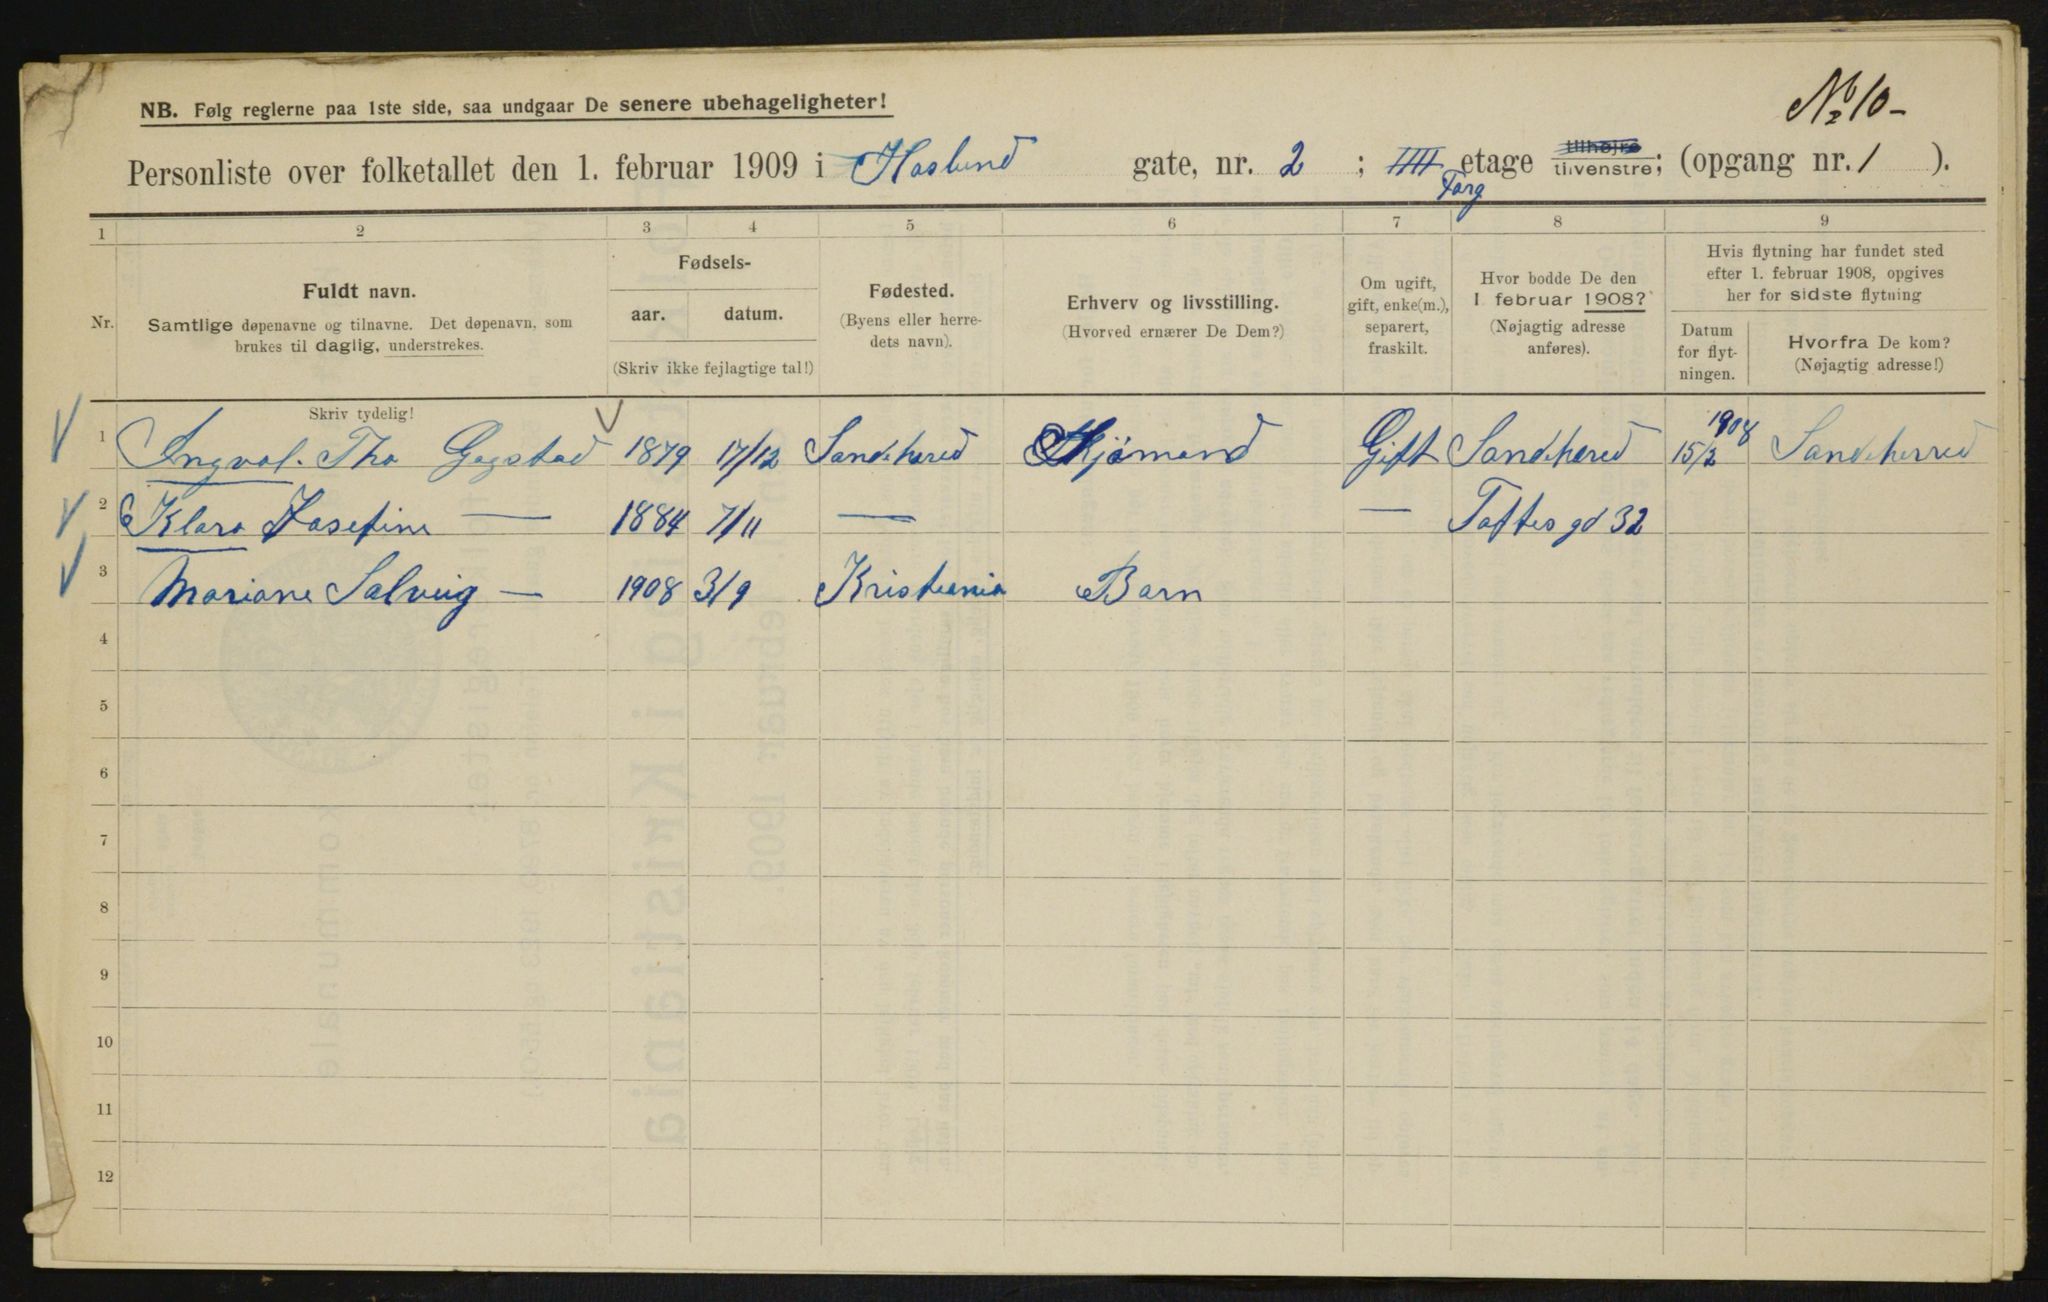 No 10-
NB. Følg reglerne paa 1ste side, saa undgaar De senere ubehageligheter!
Personliste over folketallet den 1. februar 1909 i Haslund gate, nr. 2 ; IIII etage tilhøjre tilvenstre; (opgang nr. 1 ).
Farg
1 2 3 4 5 6 7 8 9
Nr.
Fuldt navn.
Samtlige døpenavne og tilnavne. Det døpenavn, som
brukes til daglig, understrekes.
Fødsels-
aar. datum.
(Skriv ikke fejlagtige tal!)
Fødested.
(Byens eller herre-
dets navn).
Erhverv og livsstilling.
(Hvorved ernærer De Dem?)
Om ugift,
gift, enke(m.),
separert,
fraskilt.
Hvor bodde De den
1. februar 1908?
(Nøjagtig adresse
anføres).
Hvis flytning har fundet sted
efter 1. februar 1908, opgives
her for sidste flytning
Datum
for flyt-
ningen.
Hvorfra De kom?
(Nøjagtig adresse!)
Skriv tydelig!
1 Ingval. Tho Gogstad 1879 17/12 Sandehered Skjømand Gift Sandehered 1908 15/2 Sandeherred
2 Klara Josefine — 1884 7/11 — — Toftes gd 32
3 Mariane Solveig — 1908 3/9 Kristiania Barn
4
5
6
7
8
9
10
11
12